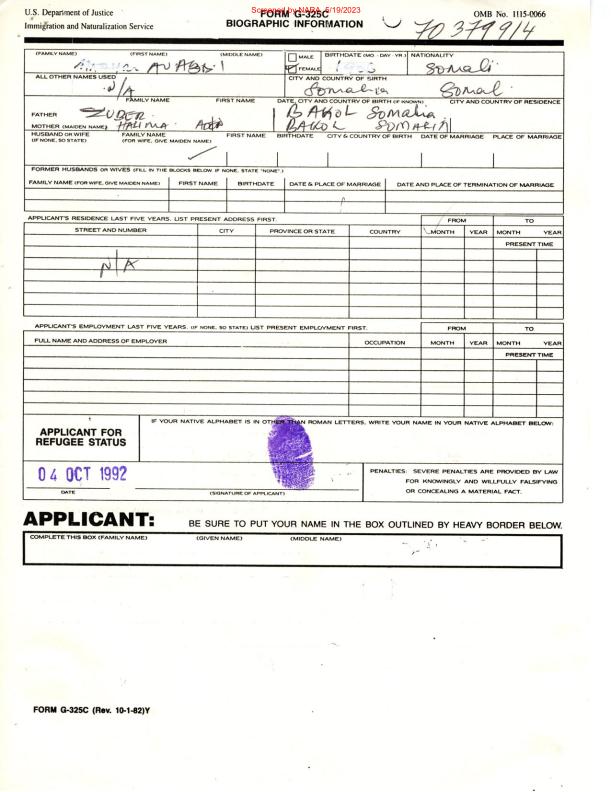 U.S. Department of Justice
Immigration and Naturalization Service
Screened by NARA, 5/19/2023
FORM G-325C
BIOGRAPHIC INFORMATION
OMB No. 1115-0066
(FAMILY NAME) (FIRST NAME) (MIDDLE NAME)
MALE
FEMALE
BIRTHDATE (MO - DAY - YR.) NATIONALITY
Somali
ALL OTHER NAMES USED
N/A
CITY AND COUNTRY OF BIRTH
Somalia Somal
FAMILY NAME FIRST NAME DATE, CITY AND COUNTRY OF BIRTH (IF KNOWN) CITY AND COUNTRY OF RESIDENCE
FATHER ZUBER BAKOL Somalia
MOTHER (MAIDEN NAME) HALIMA BAKOL SOMALIA
HUSBAND OR WIFE (IF NONE, SO STATE) FAMILY NAME (FOR WIFE, GIVE MAIDEN NAME) FIRST NAME BIRTHDATE CITY & COUNTRY OF BIRTH DATE OF MARRIAGE PLACE OF MARRIAGE
FORMER HUSBANDS OR WIVES (FILL IN THE BLOCKS BELOW IF NONE, STATE "NONE".)
FAMILY NAME (FOR WIFE, GIVE MAIDEN NAME) FIRST NAME BIRTHDATE DATE & PLACE OF MARRIAGE DATE AND PLACE OF TERMINATION OF MARRIAGE
APPLICANT'S RESIDENCE LAST FIVE YEARS. LIST PRESENT ADDRESS FIRST. FROM TO
STREET AND NUMBER CITY PROVINCE OR STATE COUNTRY MONTH YEAR MONTH YEAR
PRESENT TIME
N/A
APPLICANT'S EMPLOYMENT LAST FIVE YEARS. (IF NONE, SO STATE) LIST PRESENT EMPLOYMENT FIRST. FROM TO
FULL NAME AND ADDRESS OF EMPLOYER OCCUPATION MONTH YEAR MONTH YEAR
PRESENT TIME
APPLICANT FOR
REFUGEE STATUS
IF YOUR NATIVE ALPHABET IS IN OTHER THAN ROMAN LETTERS, WRITE YOUR NAME IN YOUR NATIVE ALPHABET BELOW:
04 OCT 1992
DATE
(SIGNATURE OF APPLICANT)
PENALTIES: SEVERE PENALTIES ARE PROVIDED BY LAW
FOR KNOWINGLY AND WILLFULLY FALSIFYING
OR CONCEALING A MATERIAL FACT.
APPLICANT: BE SURE TO PUT YOUR NAME IN THE BOX OUTLINED BY HEAVY BORDER BELOW.
COMPLETE THIS BOX (FAMILY NAME) (GIVEN NAME) (MIDDLE NAME)
FORM G-325C (Rev. 10-1-82)Y